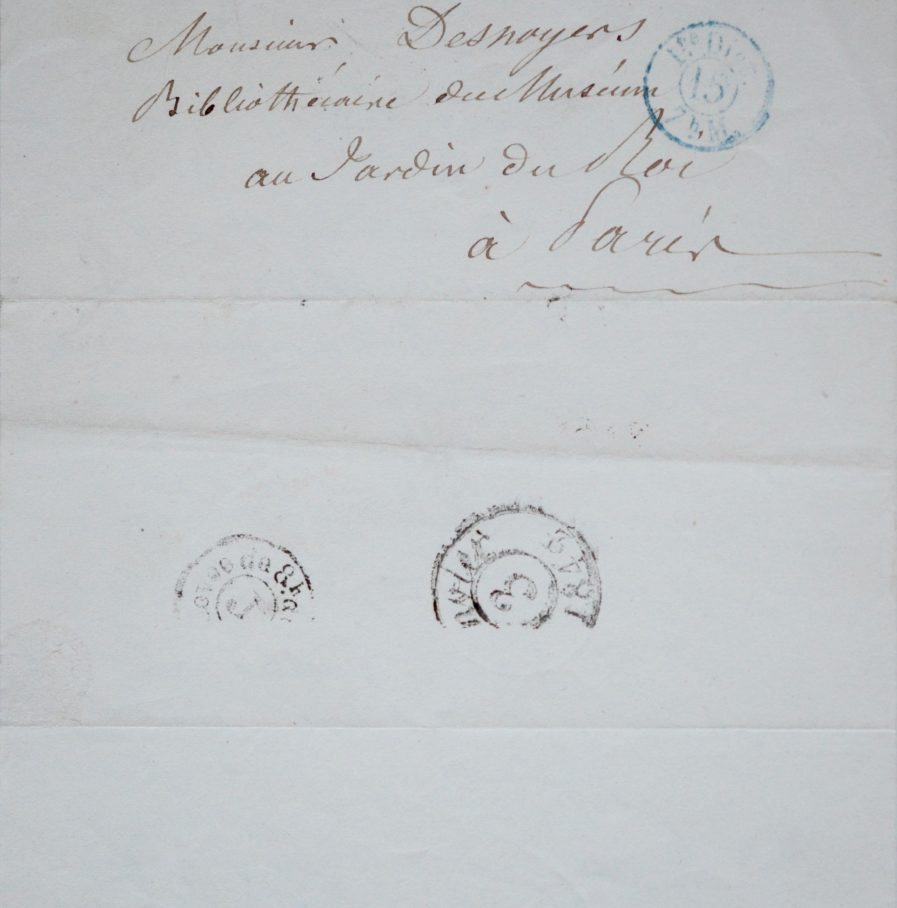 Monsieur Desnoyers
Bibliothécaire du Muséum
au Jardin du Roi
à Paris
15
3